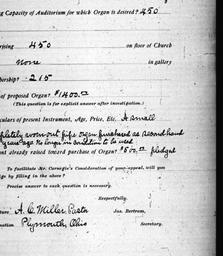 ng Capacity of Auditorium for which Organ is desired? 450
rising 450 on floor of Church
none in gallery
bership? 215
of proposed Organ? $1400.00
(This question is for explicit answer after investigation.)
culars of present Instrument, Age, Price, Etc. A small
pletely worn out pipe organ purchased as second hand
years ago no longer in condition to be used
nt already raised toward purchase of Organ? $500.00 pledged
To facilitate Mr. Carnegie's Consideration of your appeal, will you
ge by filling in the above?
Precise answer to each question is necessary.
Respectfully,
ture A. C. Miller, Pastor Jas. Bertram,
nation Plymouth, Ohio Secretary.